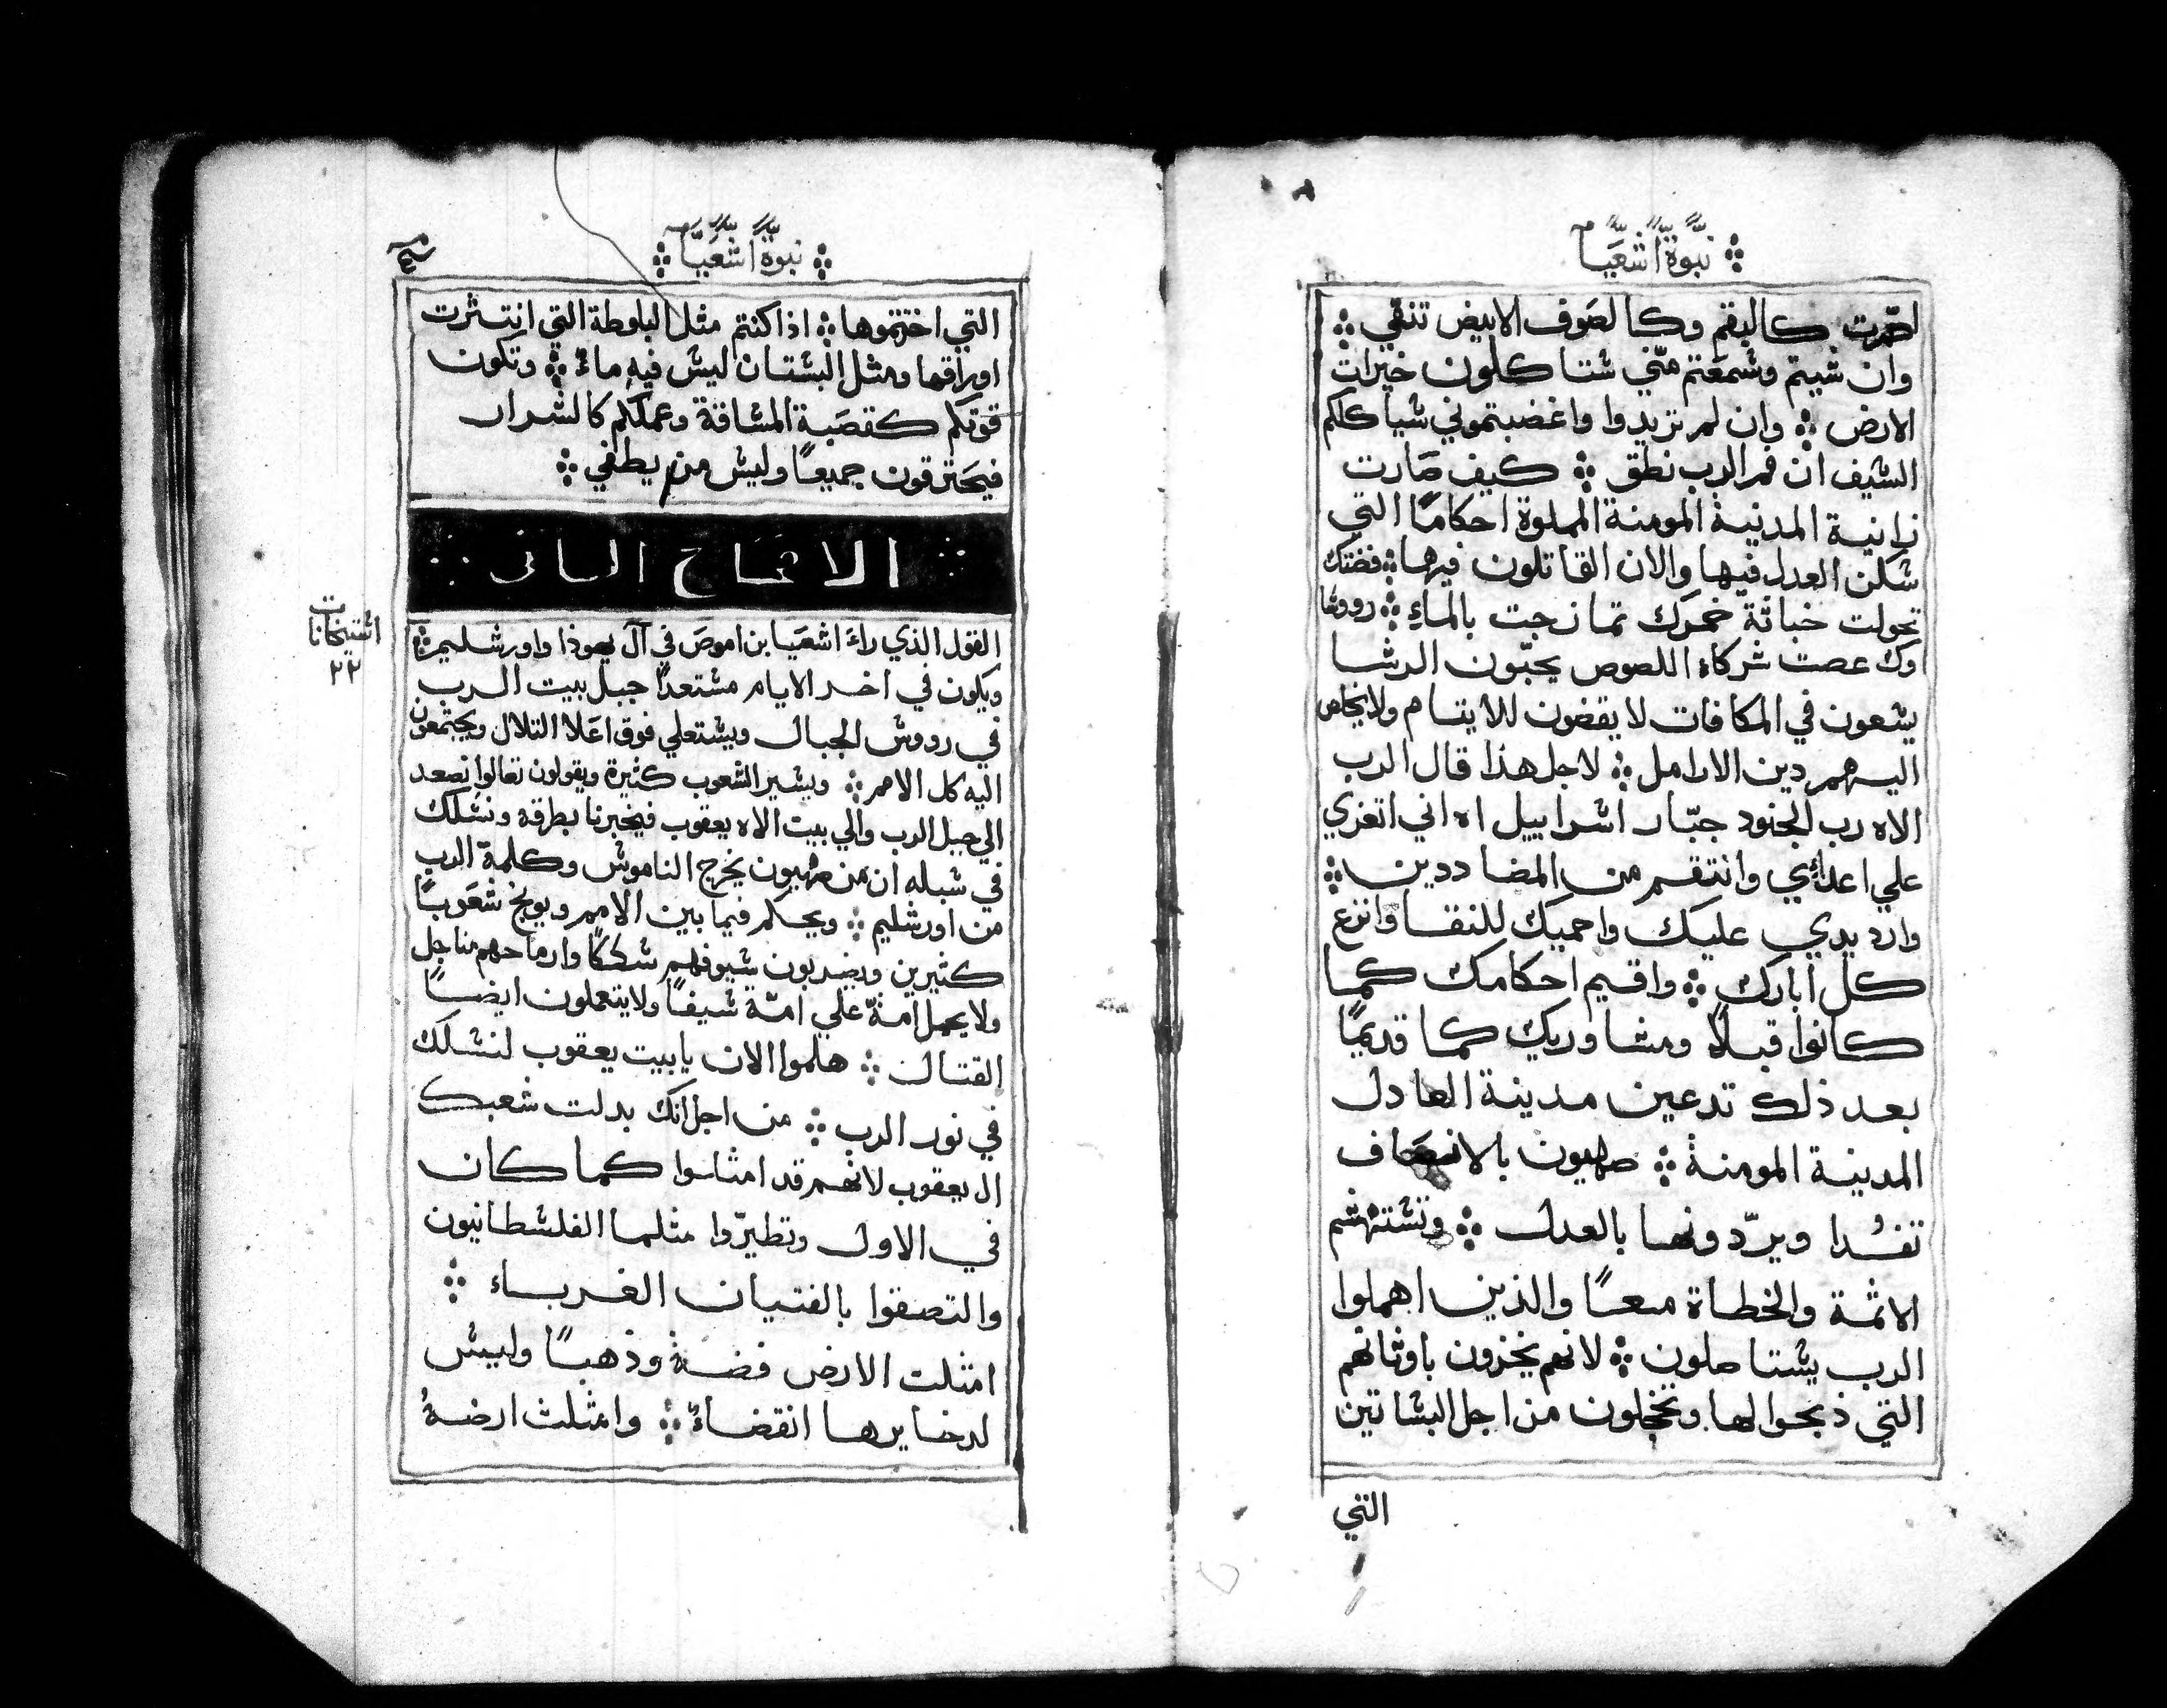 نبوّة اشعيا
احمّرت كالبقم وكالصوف الابيض تنقي
وان شيتم وشمعتم منّي شتاكلون خيرات
الارض وان لم تريدوا واغضبتموني شياكلكم
الشيف ان فم الرب نطق كيف صارت
زانية المدنية المومنة المملوة احكامًا التي
شكن العدل فيها والان القاتلون فيها فضتك
تحولت خباثة خمرك تمازجت بالماء رووشا
وك عصت شركاء اللصوص يحبّون الرشا
يشعون في المكافات لا يقضون للايتام ولا يخلص
اليهم دين الارامل لاجل هذا قال الرب
الاه رب الجنود جبّار اشراييل اه اني اتعزي
علي اعداءي وانتقم من المضاددين
وارد يدي عليك واحميك للنقا وانزع
كل اباررك واقيم احكامك كما
كانوا قبلًا ومشاوريك كما قديمًا
بعد ذلك تدعين مدينة العادل
المدينة المومنة صهيون بالانصاف
تفدا ويردّونها بالعدل وتشتهشم
الاثمة والخطاة معًا والذين اهملوا
الرب يشتاصلون لانهم يخزون باوثانهم
التي ذبحوا لها وتخجلون من اجل البشاتين
التي
نبوّة اشعيا
التي اختتموها اذا كنتم مثل البلوطة التي انتثرت
اوراقها ومثل البشتان ليش فيه ماء وتكون
قوتكم كقصبة المشاقة وعملكم كالشرار
فيحترقون جميعًا وليش من يطفي
الاصحاح الثاني
اشتيخانات
٢٢
القول الذي راء اشعيا بن اموص في آل يهوذا واورشليم
ويكون في اخر الايام مشتعدًا جبل بيت الرب
في رووش الجبال ويشتعلي فوق اعلا التلال ويجتمعون
اليه كل الامم ويشير الشعوب كثيرة ويقولون تعالوا نصعد
الي جبل الرب والي بيت الاه يعقوب فيخبرنا بطرقه ونشلك
في شبله ان من صهيون يخرج الناموش وكلمة الرب
من اورشليم ويحكم فيما بين الامم ويوبخ شعوبًا
كثيرين ويضربون شيوفهم شككًا وارماحهم مناجل
ولا يحمل امّة علي امّة شيفًا ولا يتعلمون ايضًا
القتال هلموا الان يا بيت يعقوب لنشلك
في نور الرب من اجل انك بدلت شعبك
ال يعقوب لانهم قد امتلوا كما كان
في الاول وتطيّروا مثلما الفلشطانيون
والتصقوا بالفتيان الغرباء
امتلت الارض فضة وذهبًا وليش
لدخايرها انقضاء وامتلت ارضهُ